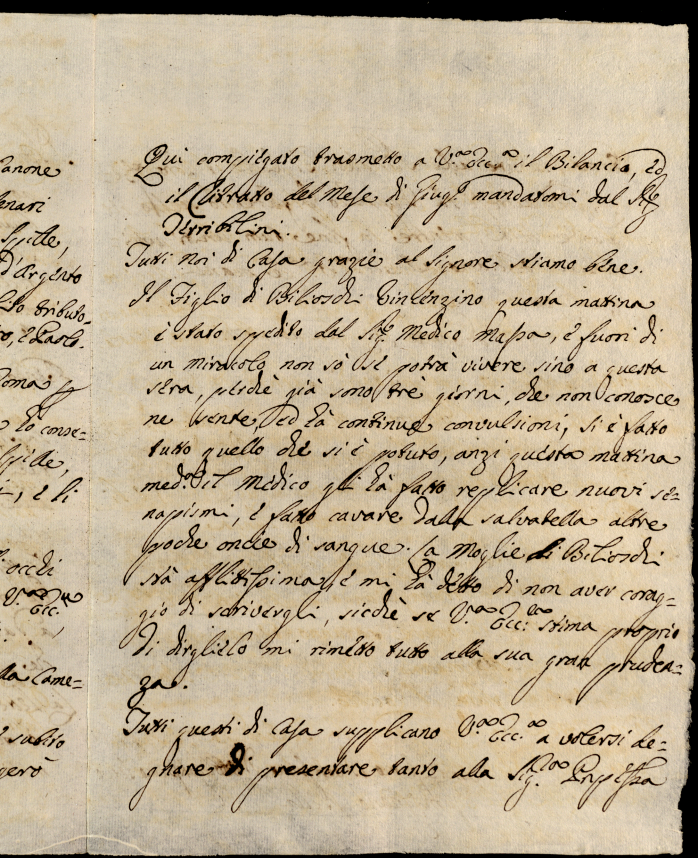 anone
enari
Spille,
d'Argento
lito tributo-
ro, e Paolo.
Roma p
ho conse=
Spille,
i, e li
occhi
V.ra Ecc.za
lla Came=
e subito
gerò
Qui compiegato trasmetto a V.ra Ecc.za il Bilancio, ed
il Ristratto del Mese di Giug.o mandatomi dal Sig.
Terribilini.
Tutti noi di Casa grazie al Signore stiamo bene.
Il Figlio di Bilioschi Vincenzino questa mattina
è stato spedito dal Sig. Medico Massa, e fuori di
un miracolo non sò se potrà vivere sino a questa
sera, perchè già sono trè giorni, che non conosce
ne sente, ed hà continue convulsioni, si è fatto
tutto quello che si è potuto, anzi questa mattina
med.a il Medico gli hà fatto replicare nuovi se=
napismi, e fatto cavare dalla salvatella altre
poche oncie di sangue. La Moglie di Bilioschi
stà afflittissima, e mi hà detto di non aver corag=
gio di scrivergli, sicchè se V.ra Ecc.za stima proprio
di dirglielo mi rimetto tutto alla sua gran pruden=
za.
Tutti questi di Casa supplicano V.ra Ecc.za a volersi de=
gnare di presentare tanto alla Sig.ra Pnpessa